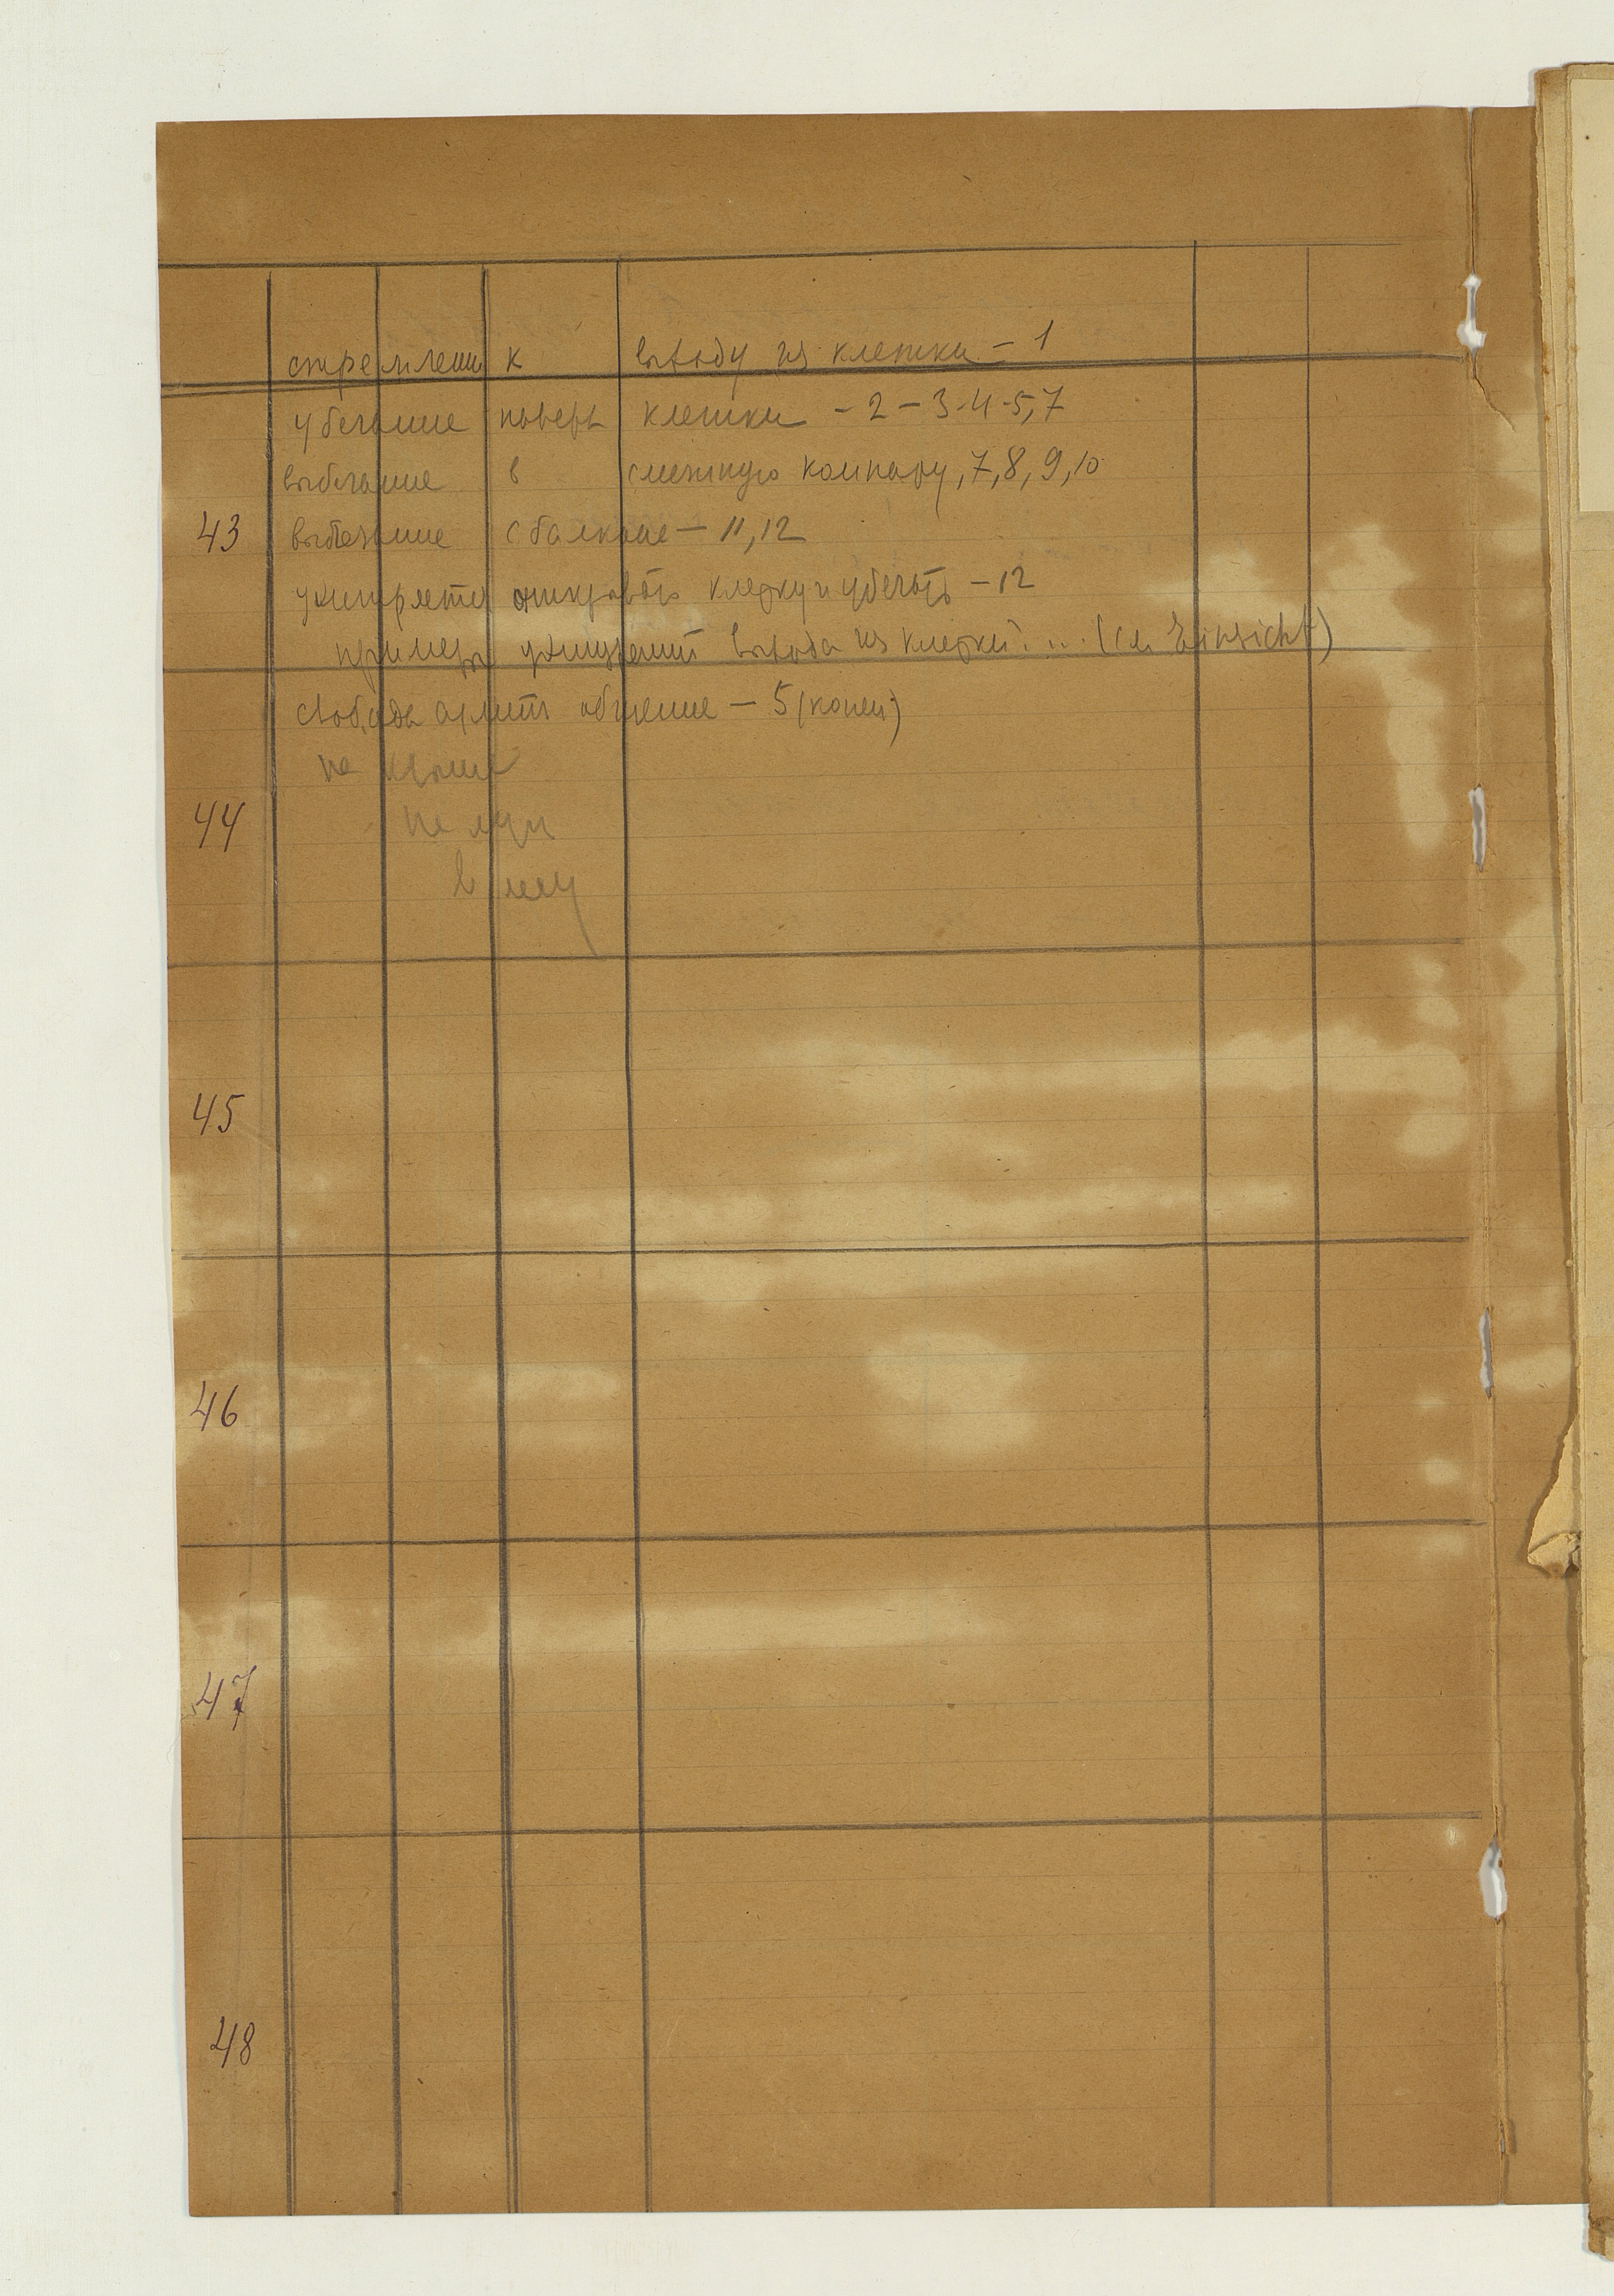 стремлени к выходу из клетки – 1
убегание поверх клетки – 2 – 3-4-5,7
выбегание в смежную комнату, 7, 8, 9, 10
43 выбегание с балкона – 11, 12
ухитряется открывать клетку и убегать – 12
примеры ухищрений выхода из клетки . . . (см Einsicht)
свобода общение – 5 (конец)
на крыше
44 на луг
в лесу
45
46
47
48